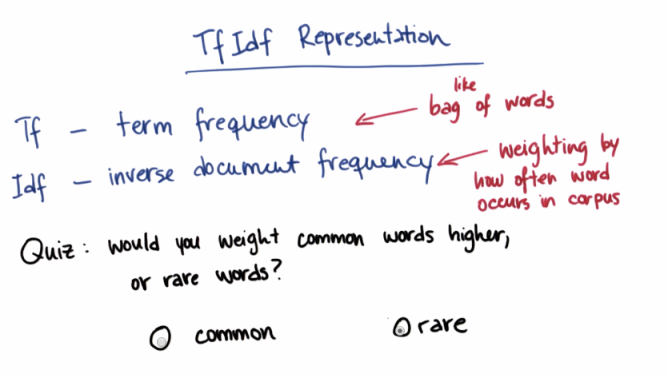 Tf Idf Representation
Tf – term frequency
like
bag of words
Idf – inverse document frequency
weighting by
how often word
occurs in corpus
Quiz: would you weight common words higher,
or rare words?
common
rare